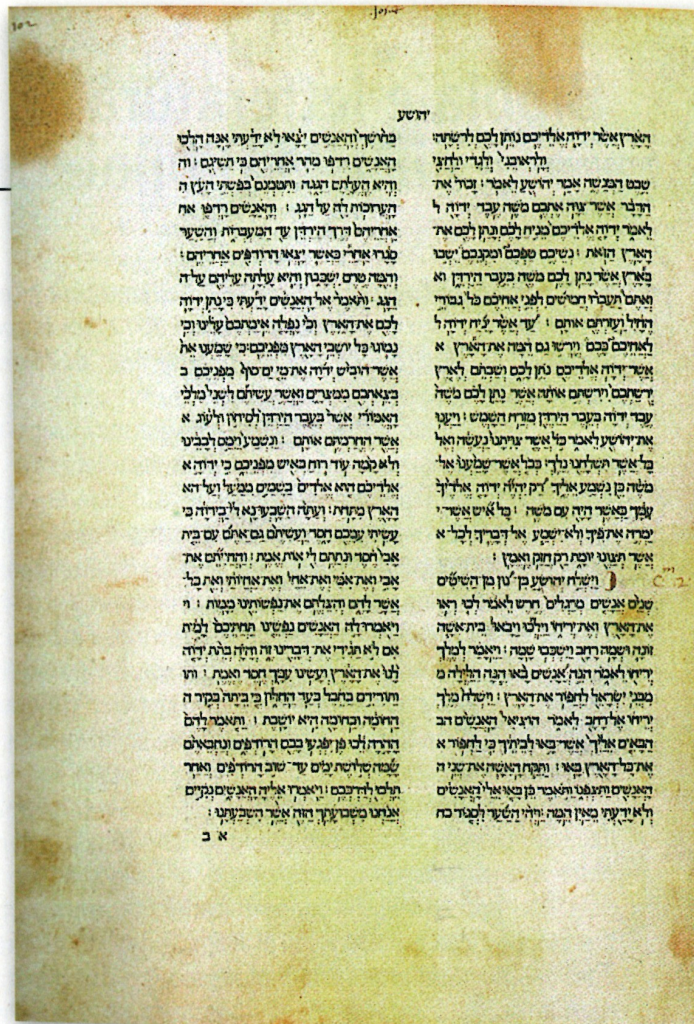 102
Josue
יהושע
הארץ אשר יהוה אלהיכם נותן לכם לרשתה׃
ולראובני ולגדי ולחצי
שבט המנשה אמר יהושע לאמר׃ זכור את
הדבר אשר צוה אתכם משה עבד יהוה ל
לאמר יהוה אלהיכם מניח לכם ונתן לכם את
הארץ הזאת׃ נשיכם טפכם ומקנכם ישבו
בארץ אשר נתן לכם משה בעבר הירדן וא
ואתם תעברו חמושים לפני אחיכם כל גבורי
החיל ועזרתם אותם׃ עד אשר יניח יהוה ל
לאחיכם ככם וירשו גם המה את הארץ א
אשר יהוה אלהיכם נותן לכם ושבתם לארץ
ירשתכם וירשתם אותה אשר נתן לכם משה
עבד יהוה בעבר הירדן מזרח השמש׃ ויענו
את יהושע לאמר כל אשר צויתנו נעשה ואל
כל אשר תשלחנו נלך׃ ככל אשר שמענו אל
משה כן נשמע אליך רק יהיה יהוה אלהיך
עמך כאשר היה עם משה׃ כל איש אשר י
ימרה את פיך ולא ישמע את דבריך לכל א
אשר תצונו יומת רק חזק ואמץ׃
C 2
וישלח יהושע בן נון מן השיטים
שנים אנשים מרגלים חרש לאמר לכו ראו
את הארץ ואת יריחו וילכו ויבאו בית אשה
זונה ושמה רחב וישכבו שמה׃ ויאמר למלך
יריחו לאמר הנה אנשים באו הנה הלילה מ
מבני ישראל לחפור את הארץ׃ וישלח מלך
יריחו אל רחב לאמר הוציאי האנשים הב
הבאים אליך אשר באו לביתך כי לחפור א
את כל הארץ באו׃ ותקח האשה את שני ה
האנשים ותצפנו ותאמר כן באו אלי האנשים
ולא ידעתי מאין המה׃ ויהי השער לסגור בח
בחושך והאנשים יצאו לא ידעתי אנה הלכו
האנשים רדפו מהר אחריהם כי תשיגום׃ וה
והיא העלתם הגגה ותטמנם בפשתי העץ ה
הערוכות לה על הגג׃ והאנשים רדפו אח
אחריהם דרך הירדן עד המעברות והשער
סגרו אחרי כאשר יצאו הרודפים אחריהם׃
והמה טרם ישכבון והיא עלתה עליהם על ה
הגג׃ ותאמר אל האנשים ידעתי כי נתן יהוה
לכם את הארץ וכי נפלה אימתכם עלינו וכי
נמוגו כל יושבי הארץ מפניכם׃ כי שמענו את
אשר הוביש יהוה את מי ים סוף מפניכם ב
בצאתכם ממצרים ואשר עשיתם לשני מלכי
האמורי אשר בעבר הירדן לסיחון ולעוג א
אשר החרמתם אותם׃ ונשמע וימס לבבינו
ולא קמה עוד רוח באיש מפניכם כי יהוה א
אלהיכם הוא אלהים בשמים ממעל ועל הא
הארץ מתחת׃ ועתה השבעו נא לי ביהוה כי
עשיתי עמכם חסד ועשיתם גם אתם עם בית
אבי חסד ונתתם לי אות אמת׃ והחייתם את
אבי ואת אמי ואת אחי ואת אחיותי ואת כל
אשר להם והצלתם את נפשותינו ממות׃ וי
ויאמרו לה האנשים נפשינו תחתיכם למות
אם לא תגידי את דברינו זה והיה בתת יהוה
לנו את הארץ ועשינו עמך חסד ואמת׃ ותו
ותורידם בחבל בעד החלון כי ביתה בקיר ה
החומה ובחומה היא יושבת׃ ותאמר להם
ההרה לכו פן יפגעו בכם הרודפים ונחבאתם
שמה שלושת ימים עד שוב הרודפים ואחר
תלכו לדרככם׃ ויאמרו אליה האנשים נקיים
אנחנו משבועתך הזה אשר השבעתנו׃
א ב